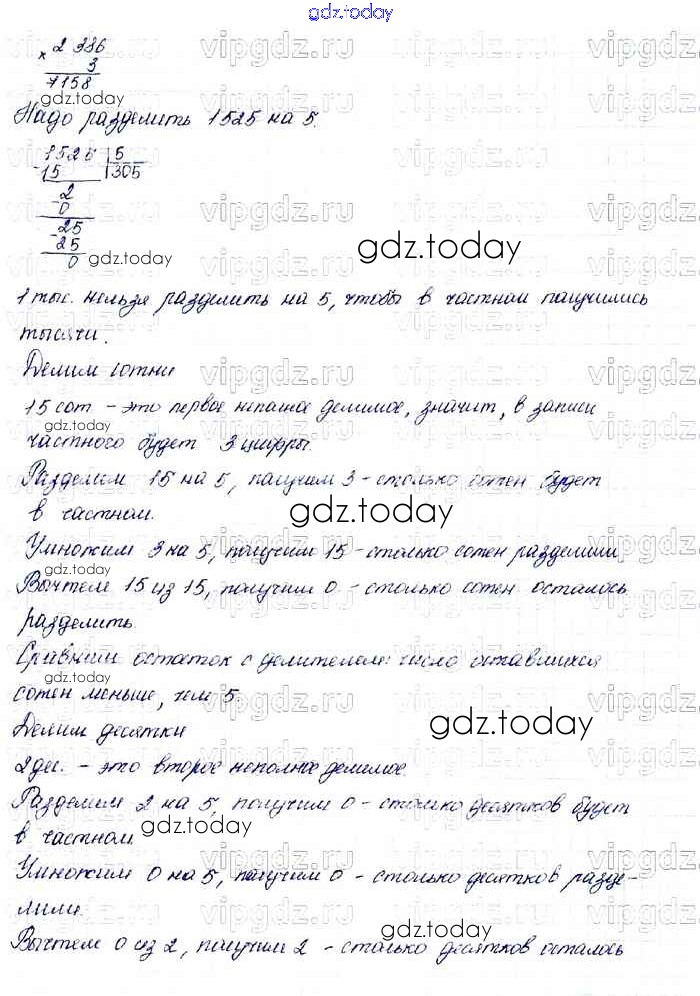 gdz.today
× 2 386
3
7158
Надо разделить 1525 на 5.
1525 |5
-15 |305
2
-0
25
-25
0
gdz.today
gdz.today
gdz.today
1 тыс. нельзя разделить на 5, чтобы в частном получились
тысячи.
Делим сотни
15 сот – это первое неполное делимое, значит, в записи
частного будет 3 цифры.
Разделим 15 на 5, получим 3 – столько сотен будет
в частном.
gdz.today
Умножим 3 на 5, получим 15 – столько сотен разделили
Вычтем 15 из 15, получим 0 – столько сотен осталось
разделить.
Сравним остаток с делителем: число оставшихся
сотен меньше, чем 5.
Делим десятки
gdz.today
2 дес. – это второе неполное делимое.
Разделим 2 на 5, получим 0 – столько десятков будет
в частном.
gdz.today
Умножим 0 на 5, получим 0 – столько десятков разде-
лили.
gdz.today
Вычтем 0 из 2, получим 2 – столько десятков осталось
vipgdz.ru